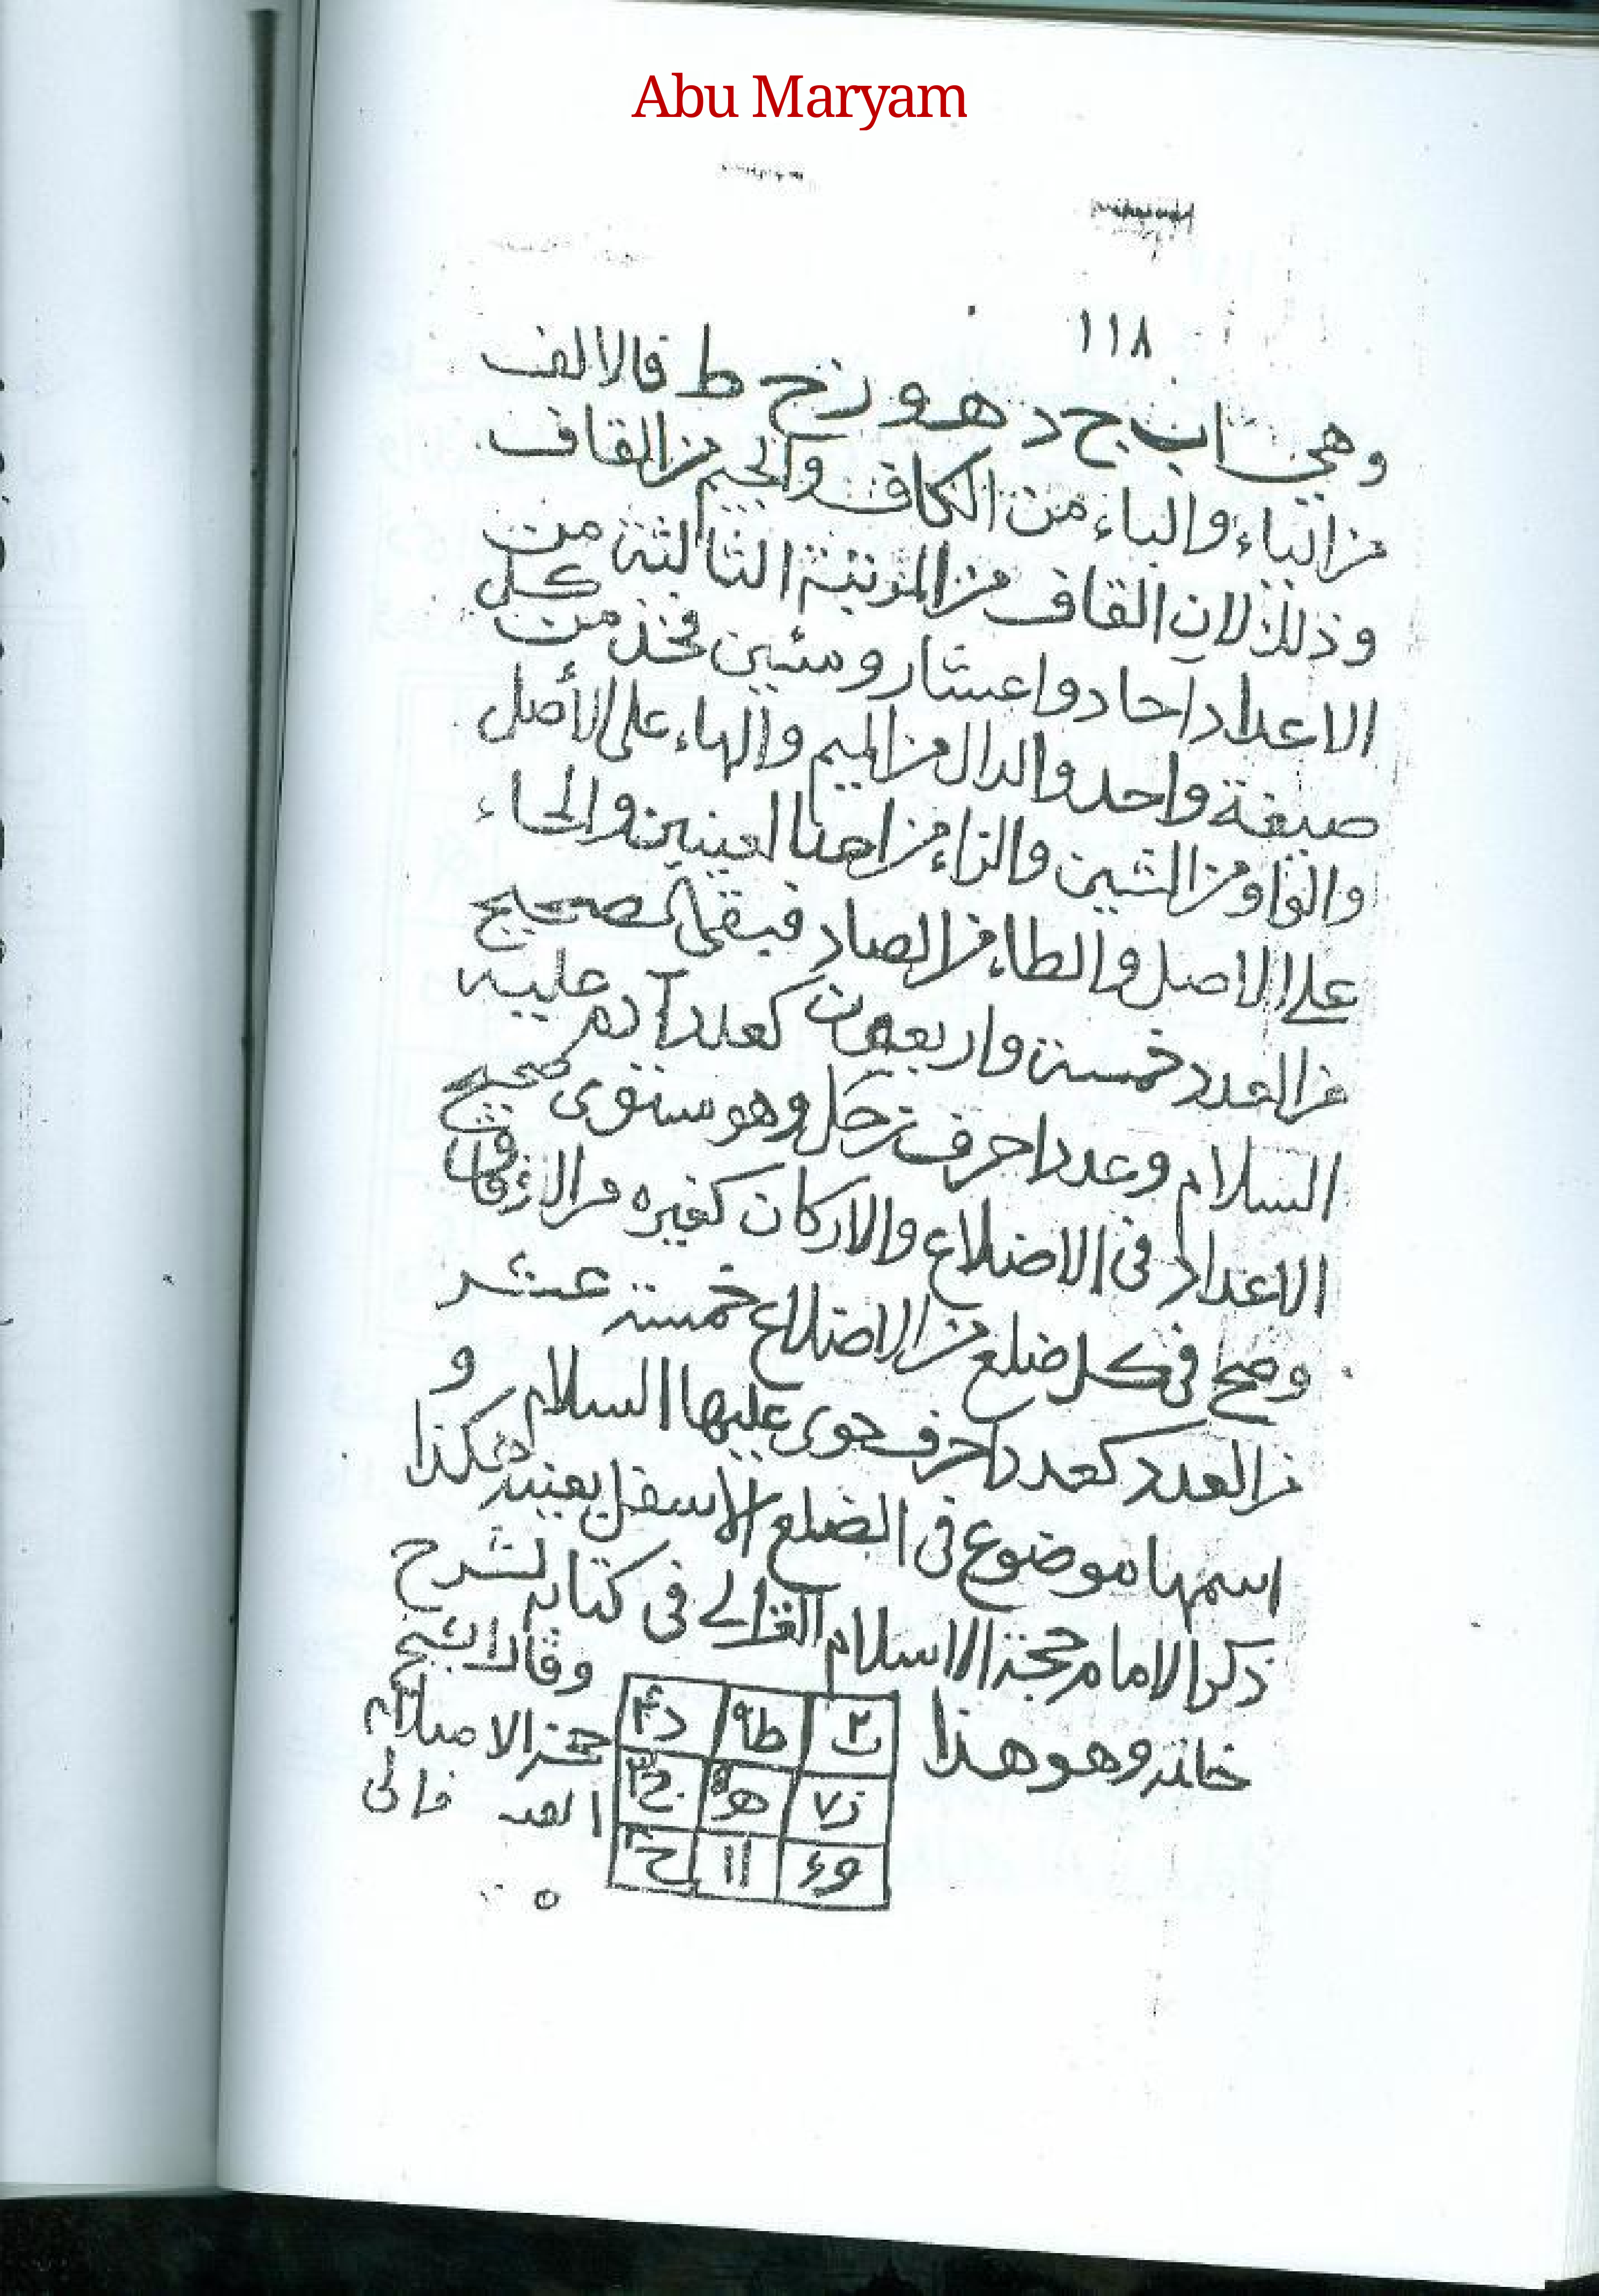 Abu Maryam
١١٨
وهي اب ج د هو ز ح ط فالالف
من الياء والباء من الكاف والجيم من القاف
وذلك لان القاف من المرتبة الثالثة من
الاعداد آحاد واعشار ومئين فخذ من كل
صيغة واحد والدال من الميم والهاء على الأصل
والواو من الشين والزاء من احدا العينين والحاء
على الاصل والطاء من الصاد فبقى صحيح
من العدد خمسة واربعون كعدد آدم عليه
السلام وعدد احرف زحل وهو مستوى صحيح
الاعداد فى الاضلاع والاركان كغيره من الاوفاق
وصح فى كل ضلع من الاضلاع خمسة عشر
من العدد كعدد احرف حوى عليها السلام و
اسمها موضوع فى الضلع الاسفل بعينه هكذا
ذكر الامام حجة الاسلام الغزالى فى كتابه لشرح
خاتمه وهو هذا
ب ٢ ط ٩ د ٤
ز ٧ ه ٥ ج ٣
و ٦ ا ١ ح ٨
وقال الشيخ
حجة الاسلام